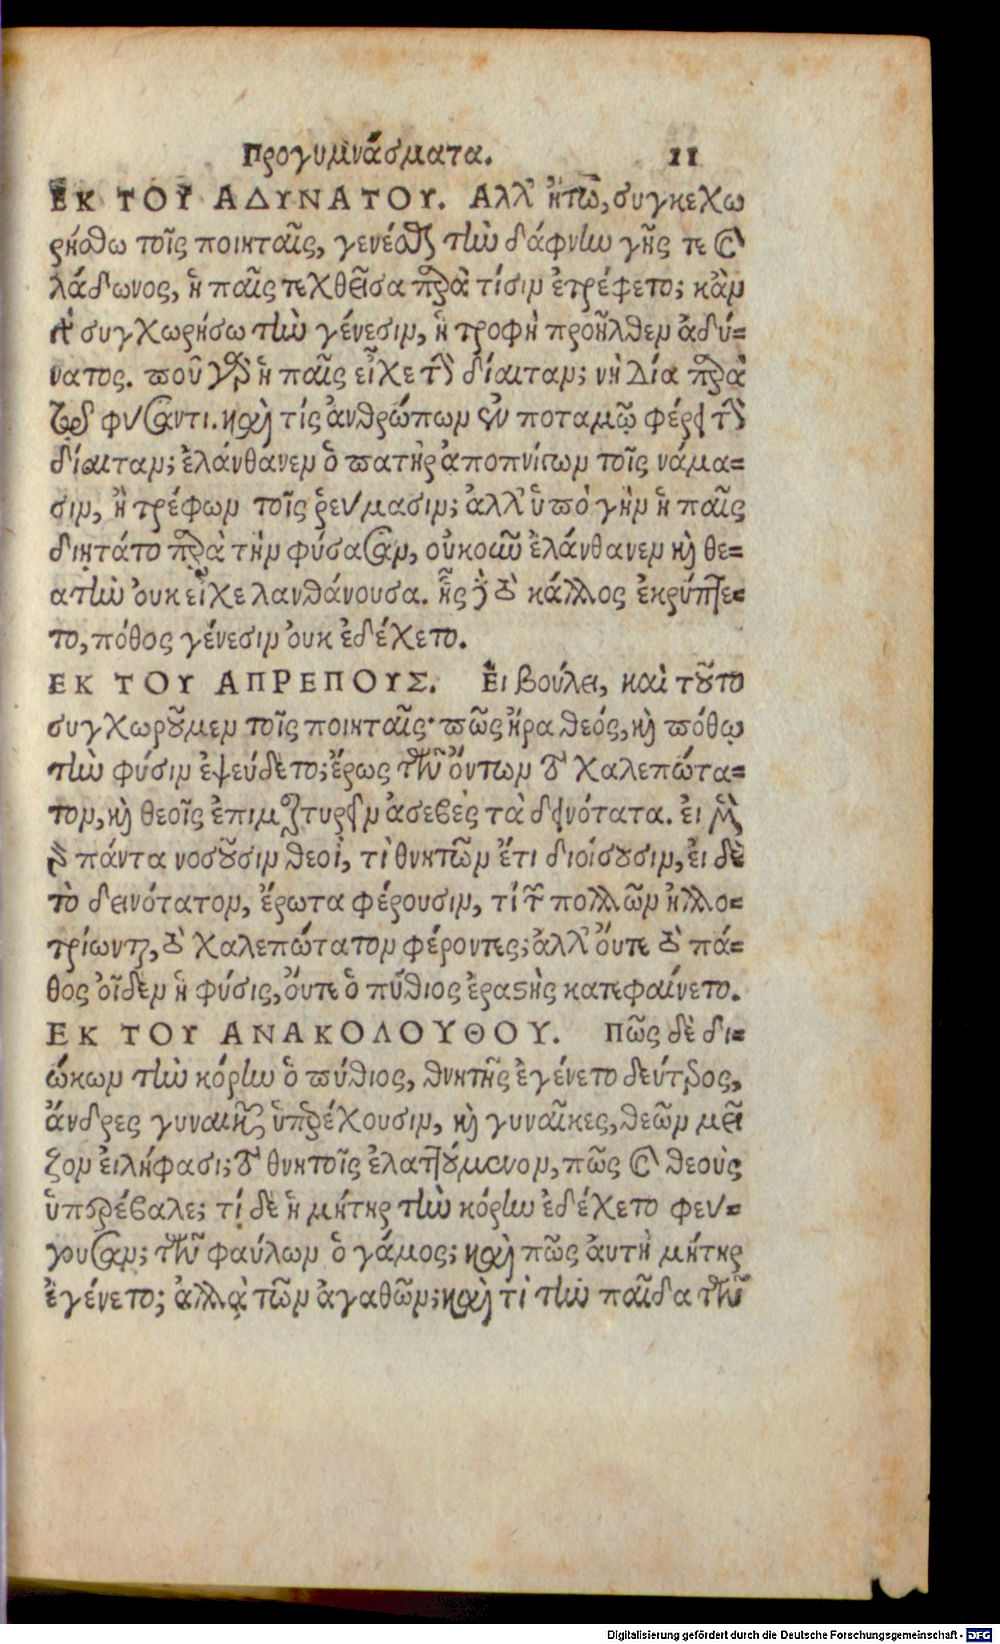 Προγυμνάσματα. 11
ΕΚ ΤΟΥ ΑΔΥΝΑΤΟΥ. Αλλ' ἤτω, συγκεχω
ρήσθω τοῖς ποιηταῖς, γενέσθαι τὴν δάφνην γῆς τε καὶ
λάδωνος, ἡ παῖς τεχθεῖσα παρὰ τίσιν ἐτρέφετο; κἂν
γὰρ συγχωρήσω τὴν γένεσιν, ἡ τροφὴ προῆλθεν ἀδύ=
νατος. ποῦ γὰρ ἡ παῖς εἶχε τὴν δίαιταν; νὴ Δία παρὰ
τῷ φύσαντι. καὶ τίς ἀνθρώπων ἐν ποταμῷ φέρει τὴν
δίαιταν; ἐλάνθανεν ὁ πατὴρ ἀποπνίγων τοῖς νάμα=
σιν, ἢ τρέφων τοῖς ῥεύμασιν; ἀλλ' ὑπὸ γὴν ἡ παῖς
διῃτάτο παρὰ τὴν φύσασαν, οὐκοῦν ἐλάνθανεν καὶ θε=
ατὴν οὐκ εἶχε λανθάνουσα. ἧς δὲ τὸ κάλλος ἐκρύπτε=
το, πόθος γένεσιν οὐκ ἐδέχετο.
ΕΚ ΤΟΥ ΑΠΡΕΠΟΥΣ. Εἰ βούλει, καὶ τοῦτο
συγχωροῦμεν τοῖς ποιηταῖς· πῶς ἤρα θεός, καὶ πόθῳ
τὴν φύσιν ἐψεύδετο; ἔρως τῶν ὄντων τὸ χαλεπώτα=
τον, καὶ θεοῖς ἐπιμαρτυρεῖν ἀσεβὲς τὰ δεινότατα. εἰ μὲν
γὰρ πάντα νοσοῦσιν θεοὶ, τὶ θνητῶν ἔτι διοίσουσιν, εἰ δὲ
τὸ δεινότατον, ἔρωτα φέρουσιν, τί τῶν πολλῶν ἠλλο=
τρίωνται, τὸ χαλεπώτατον φέροντες; ἀλλ' οὔτε τὸ πά=
θος οἶδεν ἡ φύσις, οὔτε ὁ πύθιος ἐραστὴς κατεφαίνετο.
ΕΚ ΤΟΥ ΑΝΑΚΟΛΟΥΘΟΥ. Πῶς δὲ δι=
ώκων τὴν κόρην ὁ πύθιος, θνητῆς ἐγένετο δεύτερος,
ἄνδρες γυναικῶν ὑπερέχουσιν, καὶ γυναῖκες, θεῶν μεῖ
ζον εἰλήφασι; τὸ θνητοῖς ἐλαττούμενον, πῶς καὶ θεοὺς
ὑπερέβαλε; τί δὲ ἡ μήτηρ τὴν κόρην ἐδέχετο φεύ=
γουσαν; τῶν φαύλων ὁ γάμος; καὶ πῶς αὐτὴ μήτηρ
ἐγένετο; ἀλλὰ τῶν ἀγαθῶν; καὶ τὶ τὴν παῖδα τῶν
Digitalisierung gefördert durch die Deutsche Forschungsgemeinschaft - DFG